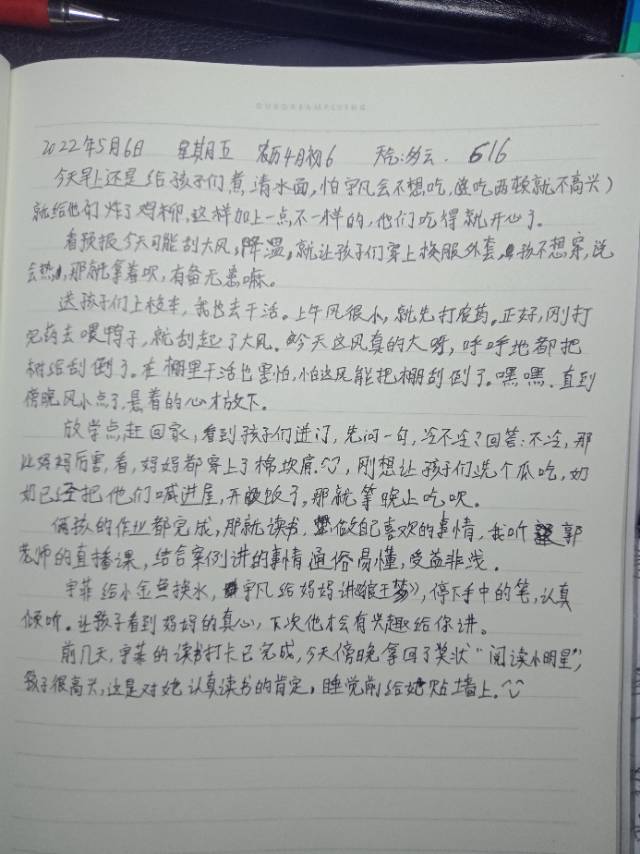 2022年5月6日 星期五 农历4月初6 天气:多云. 616
今天早上还是给孩子们煮清水面,怕宇凡会不想吃,(连吃两顿就不高兴)
就给他们炸了鸡柳,这样加上一点不一样的,他们吃得就开心了。
看预报今天可能刮大风,降温,就让孩子们穿上校服外套,孩不想穿,说
会热,那就拿着呗,有备无患嘛。
送孩子们上校车,我也去干活。上午风很小,就先打庭药。正好,刚打
完药去喂鸭子,就刮起了大风。今天这风真的大呀,呼呼地都把
树给刮倒了。在棚里干活也害怕,怕这风能把棚刮倒了。嘿嘿.直到
傍晚风小点了,悬着的心才放下。
放学点,赶回家,看到孩子们进门,先问一句,冷不冷?回答:不冷,那
比妈妈厉害,看,妈妈都穿上了棉坎肩。刚想让孩子们洗个瓜吃,奶
奶已经把他们喊进屋,开饭了,那就等晚上吃呗。
俩孩的作业都完成,那就读书,做自己喜欢的事情,我听郭
老师的直播课,结合案例讲的事情通俗易懂,受益非浅.
宇菲给小金鱼换水,宇凡给妈妈讲《猴王梦》,停下手中的笔,认真
倾听。让孩子看到妈妈的真心,下次他才会有兴趣给你讲。
前几天,宇菲的读书打卡已完成,今天傍晚拿回了奖状“阅读小明星”,
孩子很高兴,这是对她认真读书的肯定。睡觉前给她贴墙上。